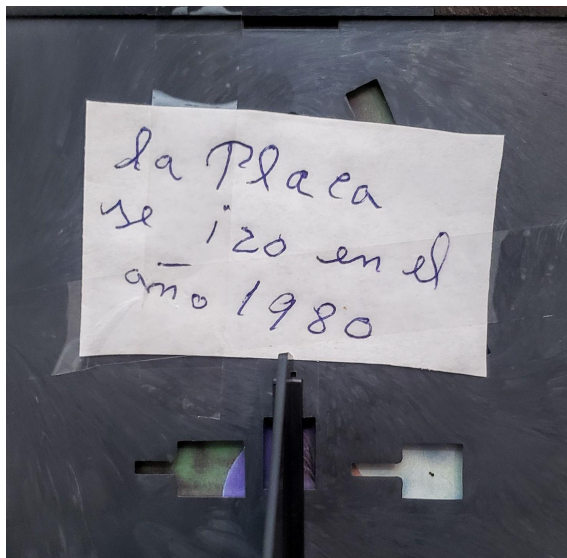 la Placa
se izo en el
año 1980